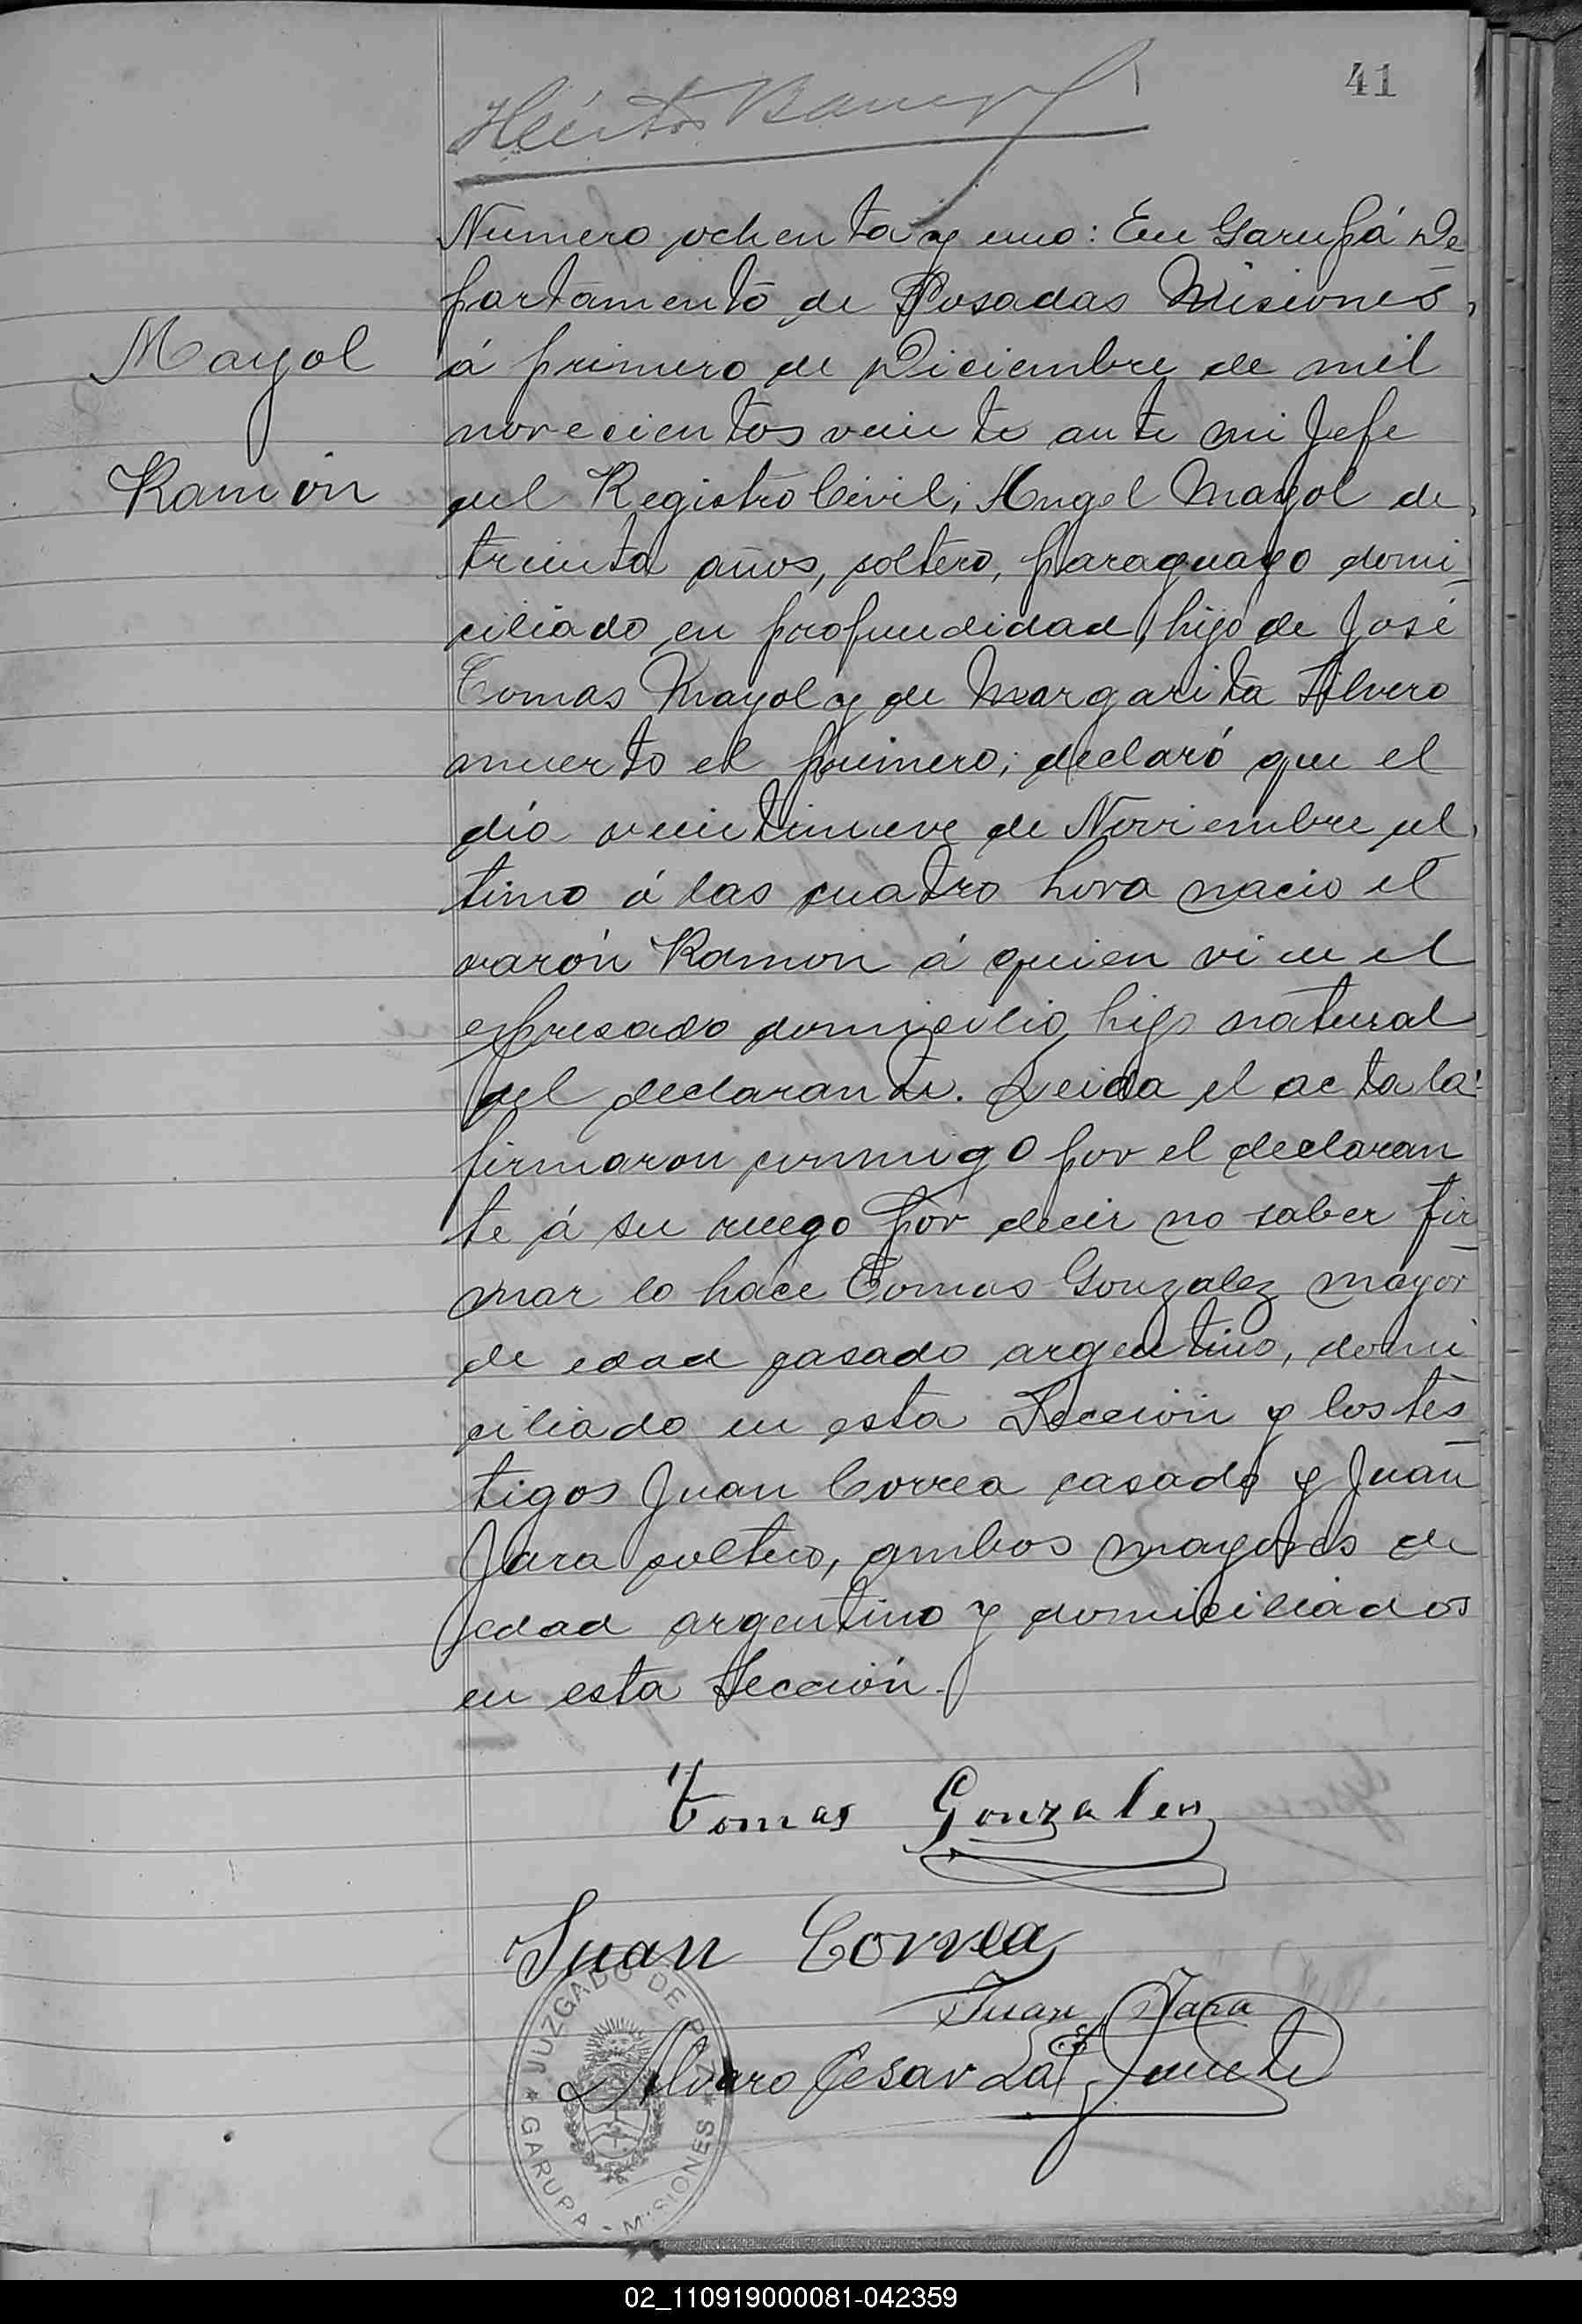 41
Numero ochenta y uno: En Garupá De
partamento de Posadas Misiones,
á primero de Diciembre de mil
novecientos veinte ante mi Jefe
Mayol
Ramón
del Registro Civil; Angel Mayol de
treinta años, soltero, paraguayo domi
ciliado en profundidad, hijo de José
Tomas Mayol y de Margarita Silvero
muerto el primero; declaró que el
día veintinueve de Noviembre ul
timo á las cuatro hora nacio el
varón Ramon á quien vi en el
espresado domicilio, hijo natural
del declarante. Leida el acta la
firmaron conmigo por el declaran
te á su ruego por decir no saber fir
mar lo hace Tomas Gonzalez mayor
de edad casado argentino, domi
ciliado en esta Sección y los tes
tigos Juan Correa casado y Juan
Jara soltero, ambos mayores de
edad argentino y domiciliados
en esta Sección.
Tomas Gonzalez
Juan Correa
Juan Jara
Alvaro Cesar La
JUZGADO DE PAZ
GARUPA - MISIONES
02_110919000081-042359